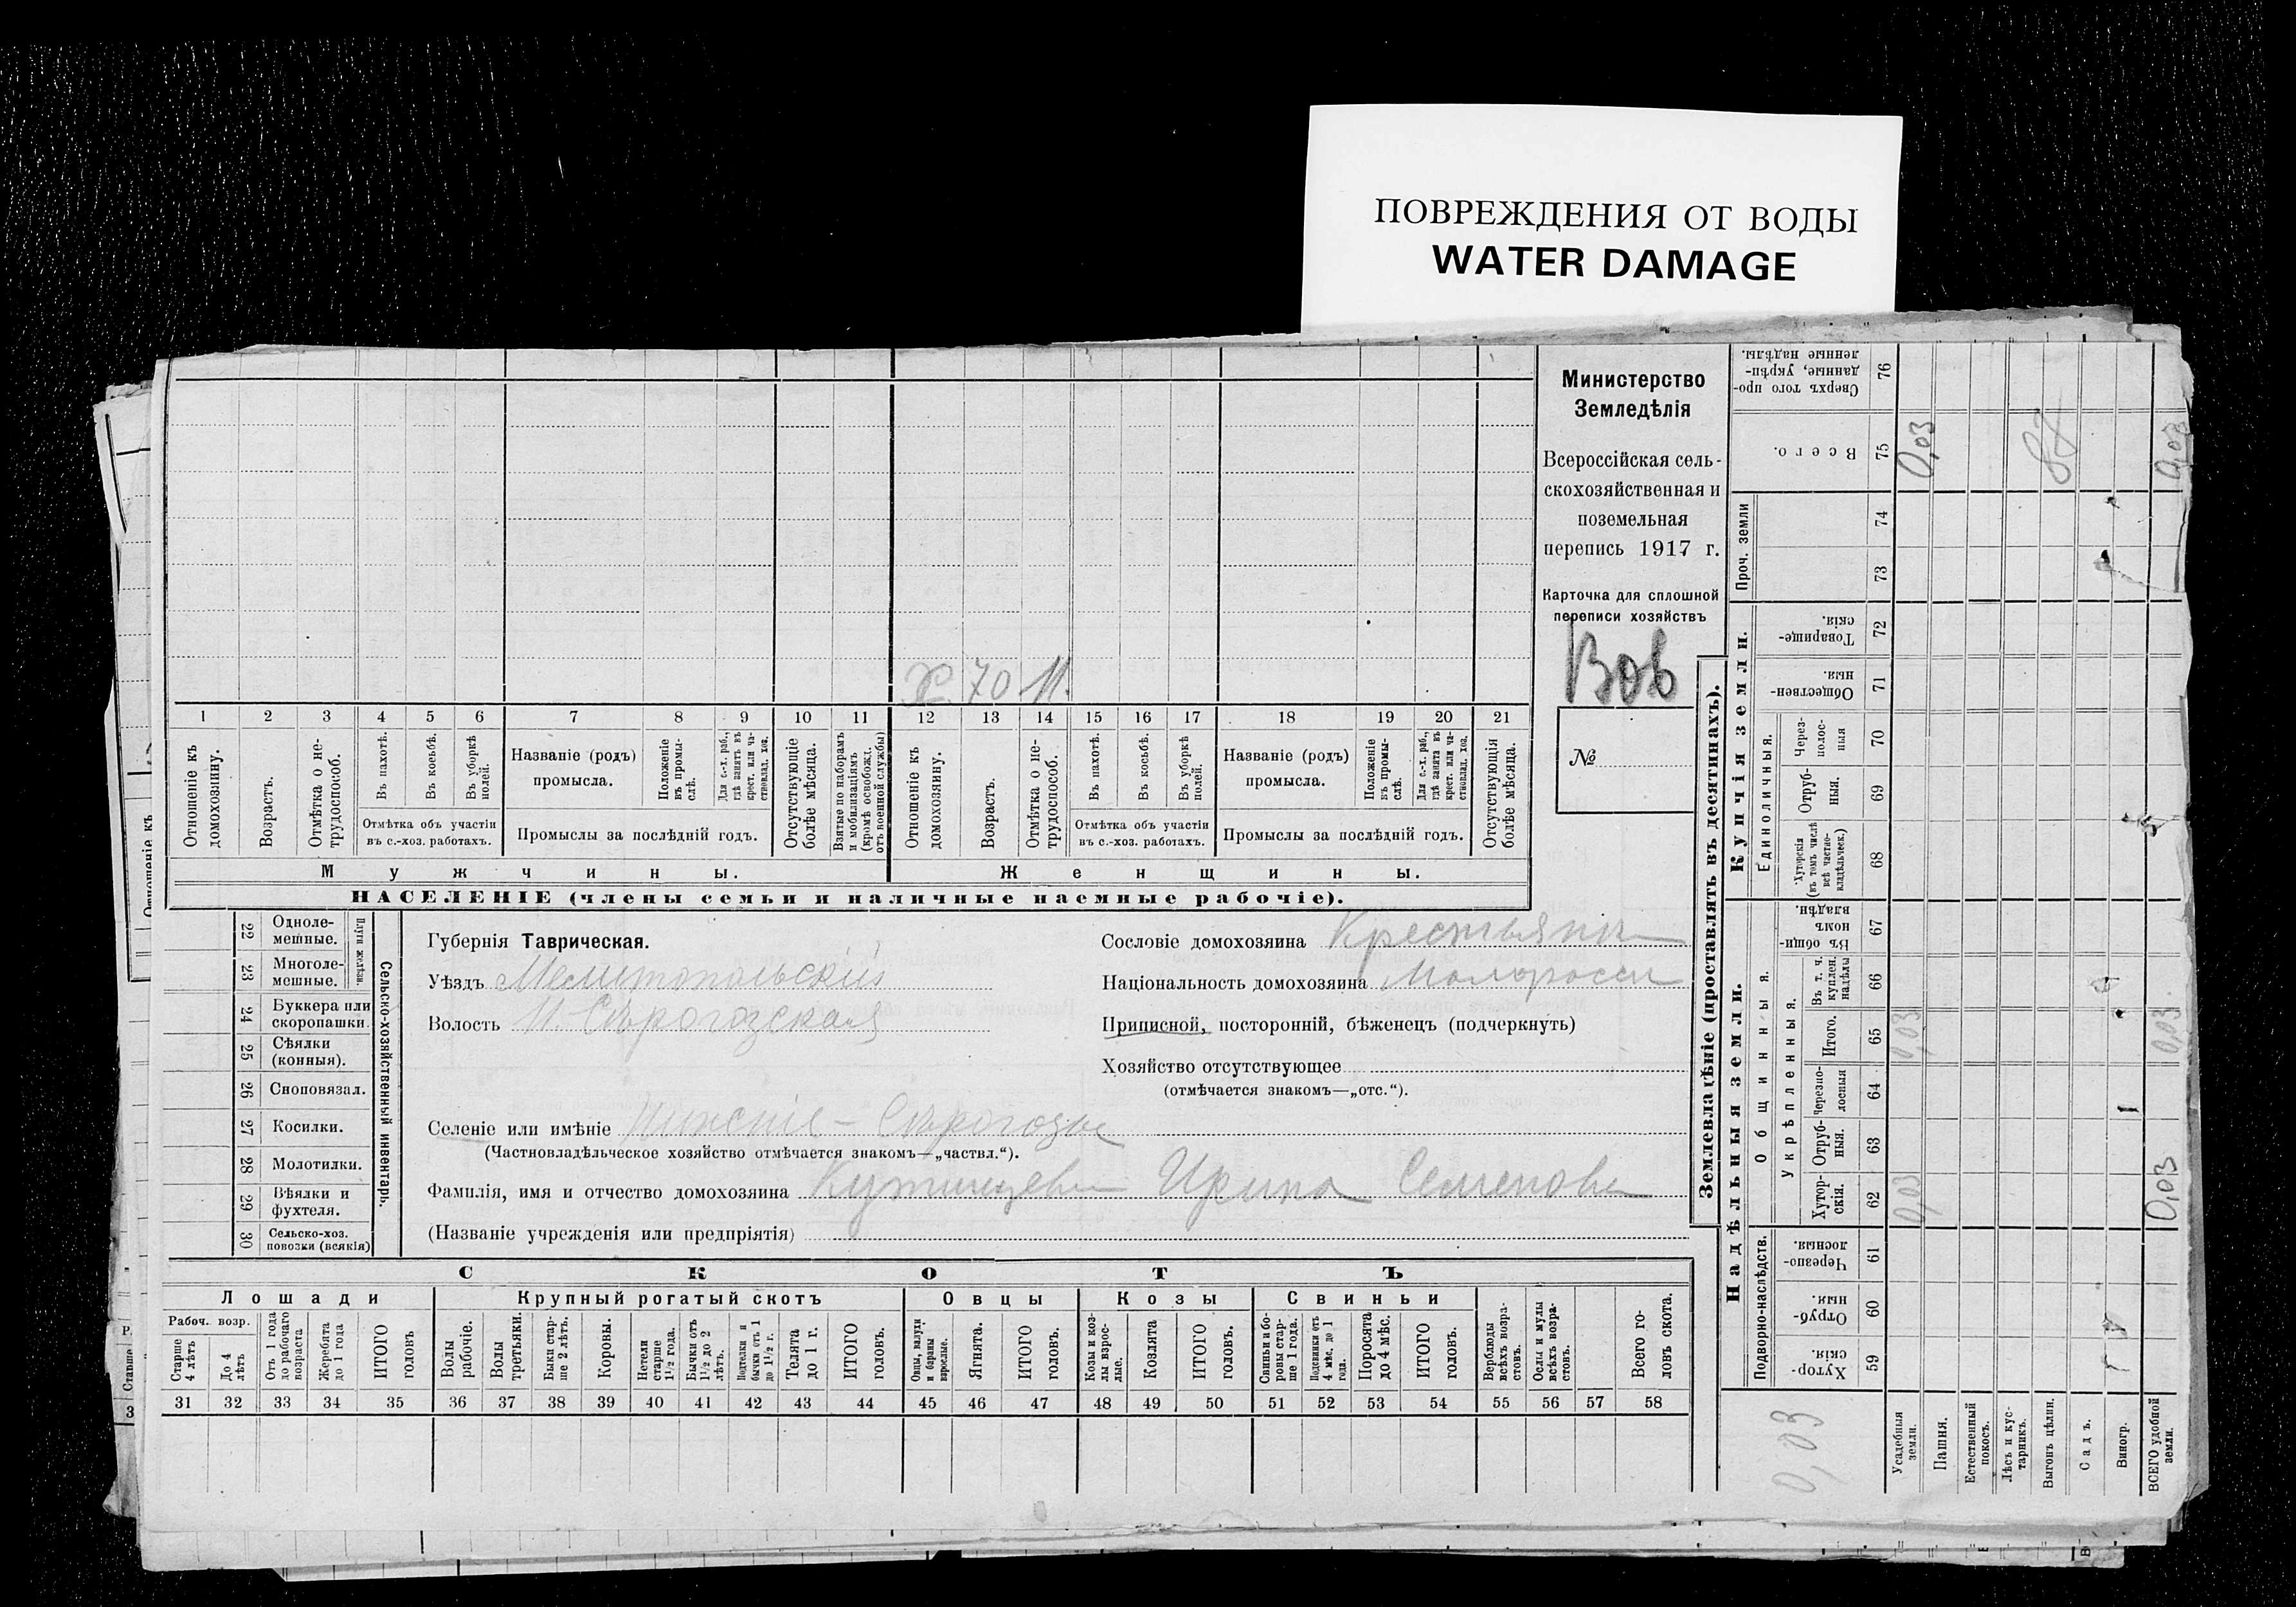 ПОВРЕЖДЕНИЯ ОТ ВОДЫ
WATER DAMAGE
Х. 70 н.
1 2 3 4 5 6 7 8 9 10 11 12 13 14 15 16 17 18 19 20 21
Отношеніе къ домохозяину.
Возрастъ.
Отмѣтка о нетрудоспособ.
Въ пахотѣ.
Въ косьбѣ.
Въ уборкѣ полей.
Отмѣтка объ участіи
въ с.-хоз. работахъ.
Названіе (родъ)
промысла.
Положеніе въ промыслѣ.
Для с.-х. раб., гдѣ занятъ въ крест. или частновлад. хоз.
Промыслы за послѣдній годъ.
Отсутствующіе болѣе мѣсяца.
Взятые по наборамъ и мобилизаціямъ (кромѣ освобожд. отъ военной службы)
Отношеніе къ домохозяину.
Возрастъ.
Отмѣтка о нетрудоспособ.
Въ пахотѣ.
Въ косьбѣ.
Въ уборкѣ полей.
Отмѣтка объ участіи
въ с.-хоз. работахъ.
Названіе (родъ)
промысла.
Положеніе въ промыслѣ.
Для с.-х. раб., гдѣ занята въ крест. или частновлад. хоз.
Промыслы за послѣдній годъ.
Отсутствующія болѣе мѣсяца.
Мужчины.
Женщины.
НАСЕЛЕНІЕ (члены семьи и наличные наемные рабочіе).
Министерство
Земледѣлія
Всероссійская сель-
скохозяйственная и
поземельная
перепись 1917 г.
Карточка для сплошной
переписи хозяйствъ
Вов
№
22 Одноле-
мешные.
23 Многоле-
мешные.
Плуги желѣзн.
24 Буккера или
скоропашки.
25 Сѣялки
(конныя).
26 Сноповязал.
27 Косилки.
28 Молотилки.
29 Вѣялки и
фухтеля.
30 Сельско-хоз.
повозки (всякія)
Сельско-хозяйственный инвентарь.
Губернія Таврическая.
Уѣздъ Мелитопольскій
Волость Н. Сѣрогозская
Сословіе домохозяина Крестьянк
Національность домохозяина Малоросс
Приписной, посторонній, бѣженецъ (подчеркнуть)
Хозяйство отсутствующее
(отмѣчается знакомъ—„отс.“).
Селеніе или имѣніе Нижніе - Сѣрогозы
(Частновладѣльческое хозяйство отмѣчается знакомъ—„частвл.“).
Фамилія, имя и отчество домохозяина Ирина Семенова
(Названіе учрежденія или предпріятія)
СКОТЪ
Лошади
Крупный рогатый скотъ
Овцы
Козы
Свиньи
Рабоч. возр.
Старше 4 лѣтъ
До 4 лѣтъ
Отъ 1 года до рабочаго возраста
Жеребята до 1 года
ИТОГО головъ
Волы рабочіе.
Волы третьяки.
Быки старше 2 лѣтъ.
Коровы.
Нетели старше 1½ года.
Бычки отъ 1½ до 2 лѣтъ.
Подтелки и бычки отъ 1 до 1½ г.
Телята до 1 г.
ИТОГО головъ.
Овцы, валухи и бараны взрослые.
Ягнята.
ИТОГО головъ.
Козы и козлы взрослые.
Козлята
ИТОГО головъ.
Свиньи и боровы старше 1 года.
Подсвинки отъ 4 мѣс. до 1 года.
Поросята до 4 мѣс.
ИТОГО головъ.
Верблюды всѣхъ возрастовъ.
Ослы и мулы всѣхъ возрастовъ.
Всего головъ скота.
31 32 33 34 35 36 37 38 39 40 41 42 43 44 45 46 47 48 49 50 51 52 53 54 55 56 57 58
Землевладѣніе (проставлять въ десятинахъ).
Надѣльныя земли.
Купчія земли.
Проч. земли
Подворно-наслѣдств.
Общинныя.
Укрѣпленныя.
Единоличныя.
Хуторскія. 59
Отрубныя. 60
Черезполосныя. 61
Хуторскія. 62
Отрубныя. 63
Черезполосныя 64
Итого. 65
Въ т. ч. куплен. надѣлы 66
Въ общинномъ владѣн. 67
Хуторскія (въ томъ числѣ всѣ частновладѣльческ.) 68
Отрубныя. 69
Черезполосныя 70
Общественныя. 71
Товарищескія. 72
73
74
Всего. 75
Сверхъ того проданные, укрѣпленные надѣлы. 76
Усадебныя земли.
Пашня.
Естественный покосъ.
Лѣсъ и кустарникъ.
Выгонъ цѣлин.
Садъ.
Виногр.
ВСЕГО удобной земли.
0,03
0,03
0,03
0,03
0,03
0,03
0,03